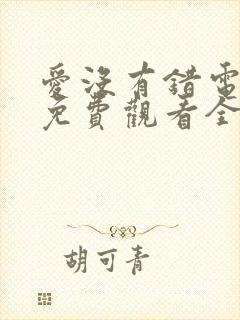 愛沒有錯電
免費觀看全
胡可青